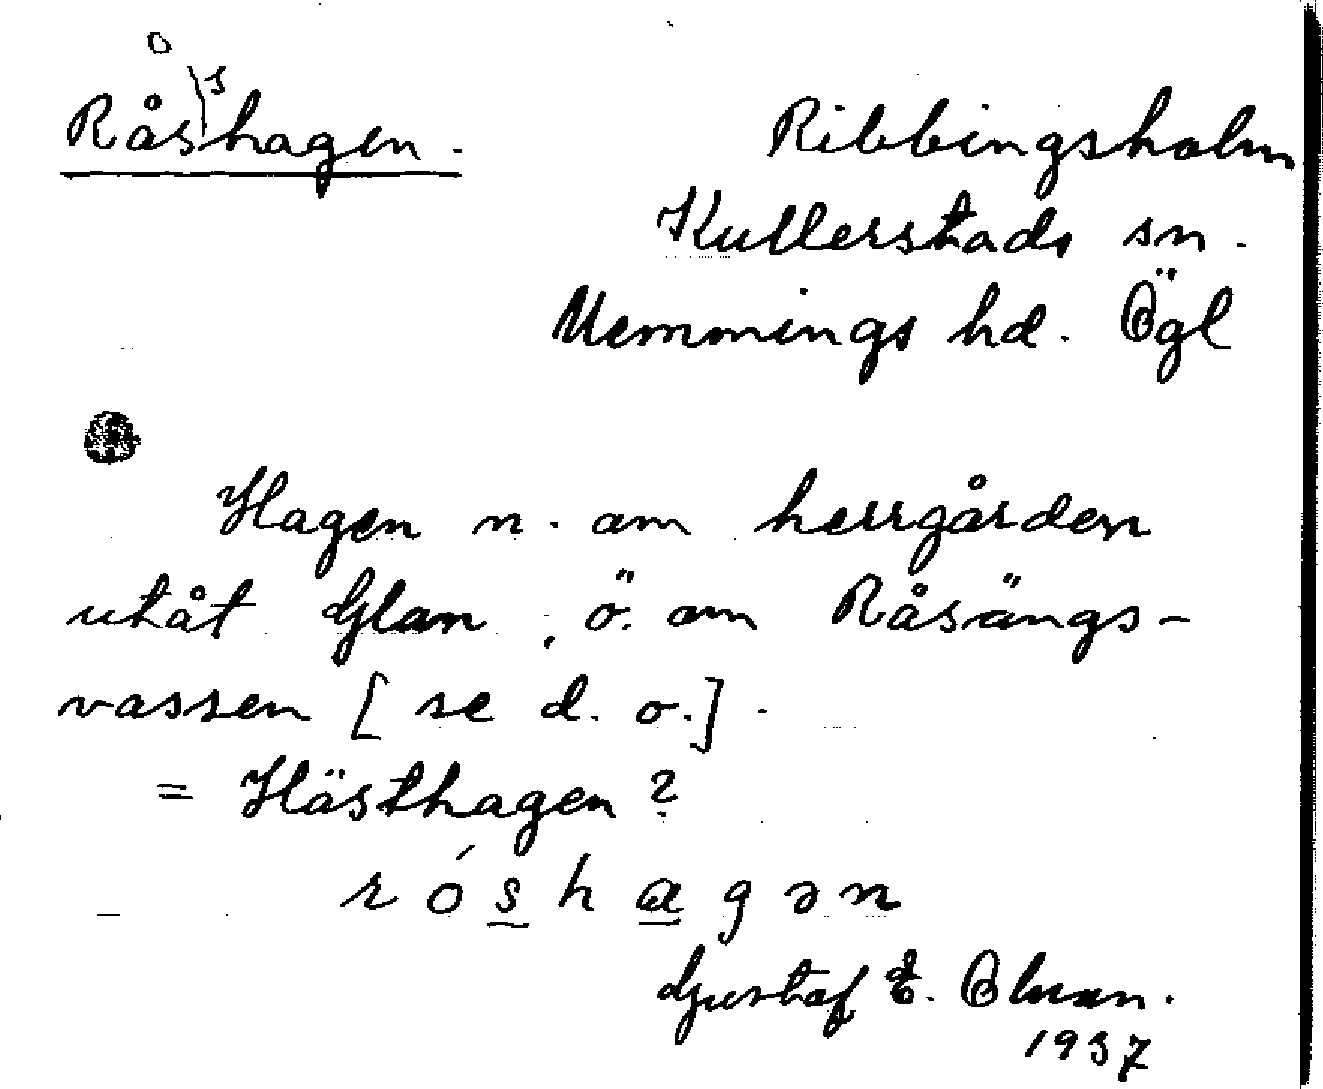 o s
Råshagen.
Ribbingsholm
Kullerstads sn.
Memmings hd. Ögl
Hagen n. om herrgården
utåt Glan, ö. om Råsängs-
vassen [se d. o.].
= Hästhagen?
róshagən
Gustaf E.
1937